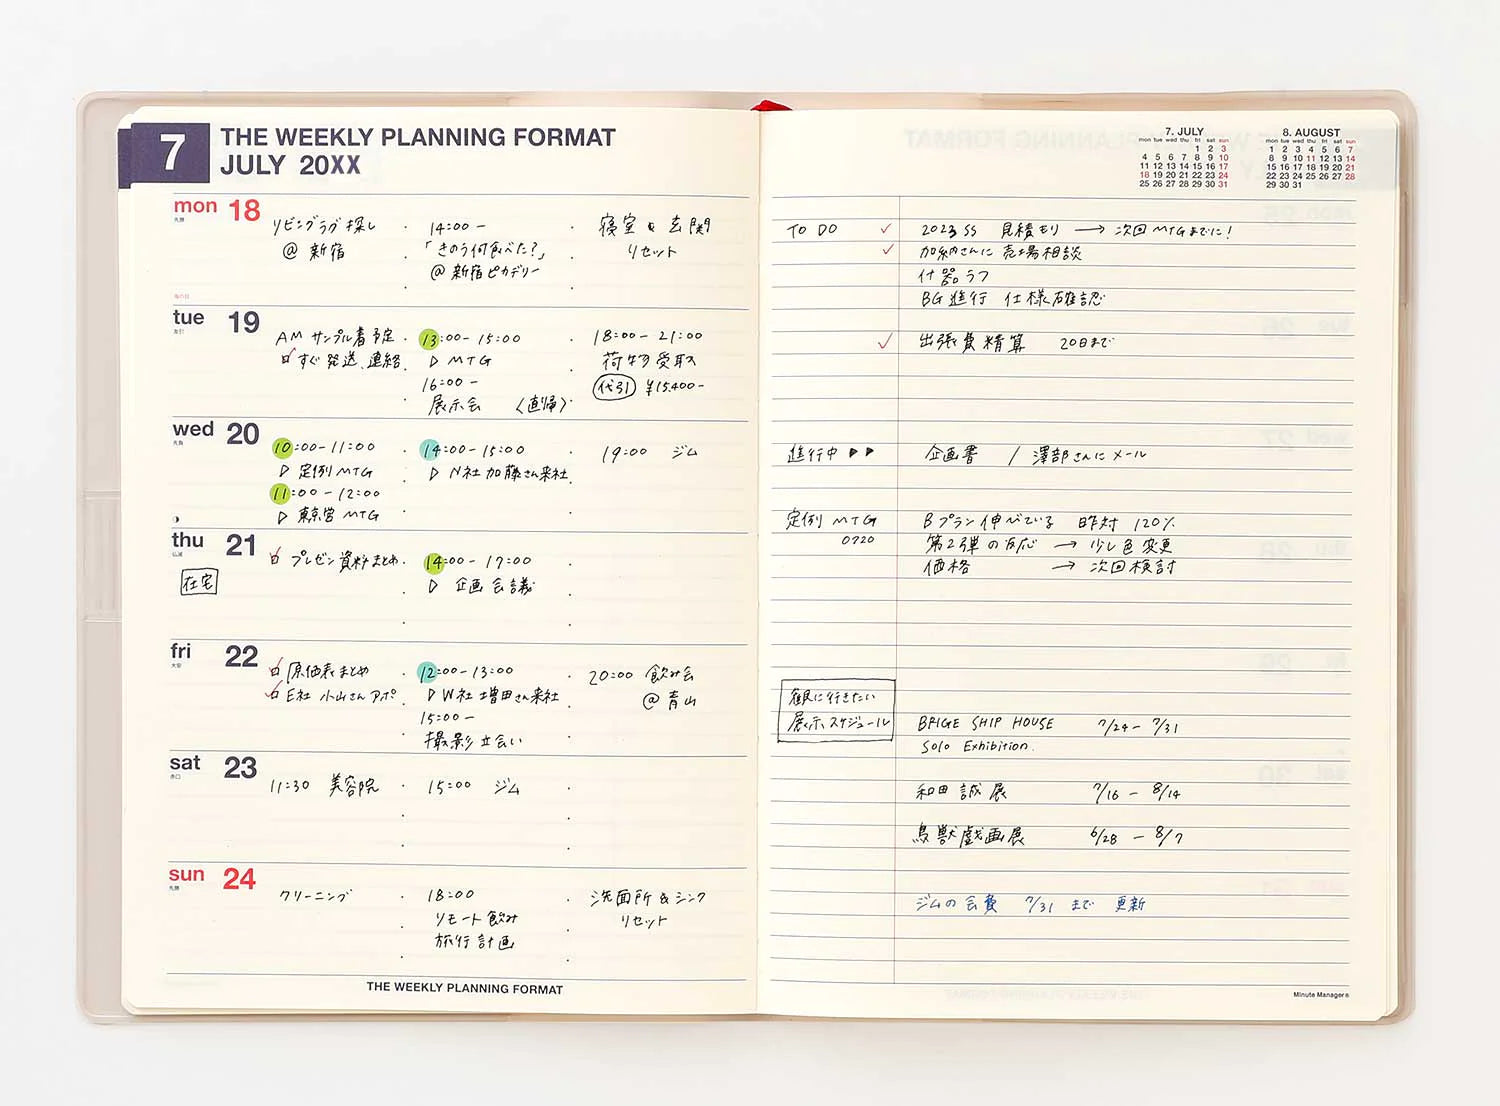 7
THE WEEKLY PLANNING FORMAT
JULY 20XX
mon 18
先勝
リビングラグ探し
@ 新宿
14:00 -
「きのう何食べた?」
@ 新宿ピカデリー
寝室 & 玄関
リセット
海の日
tue 19
友引
AM サンプル着予定
すぐ発送、連絡
13:00 - 15:00
▷ MTG
16:00 -
展示会 〈直帰〉
18:00 - 21:00
荷物受取
代引 ¥15,400-
wed 20
先負
10:00 - 11:00
▷ 定例MTG
11:00 - 12:00
▷ 東京営MTG
14:00 - 15:00
▷ N社 加藤さん来社
19:00 ジム
thu 21
仏滅
在宅
プレゼン資料まとめ
14:00 - 17:00
▷ 企画会議
fri 22
大安
原価表まとめ
E社 小山さんアポ
12:00 - 13:00
▷ W社 増田さん来社
15:00 -
撮影立会い
20:00 飲み会
@ 青山
sat 23
赤口
11:30 美容院
15:00 ジム
sun 24
先勝
クリーニング
18:00
リモート飲み
旅行計画
洗面所 & シンク
リセット
THE WEEKLY PLANNING FORMAT
7. JULY
mon tue wed thu fri sat sun
1 2 3
4 5 6 7 8 9 10
11 12 13 14 15 16 17
18 19 20 21 22 23 24
25 26 27 28 29 30 31
8. AUGUST
mon tue wed thu fri sat sun
1 2 3 4 5 6 7
8 9 10 11 12 13 14
15 16 17 18 19 20 21
22 23 24 25 26 27 28
29 30 31
TO DO ✓ 2023 SS 見積もり → 次回MTGまでに!
✓ 加納さんに売場相談
什器ラフ
BG進行 仕様確認
✓ 出張費精算 20日まで
進行中 ▶▶ 企画書 / 澤部さんにメール
定例MTG Bプラン伸べている 昨対 120%
0720 第2弾の反応 → 少し色変更
価格 → 次回検討
観に行きたい
展示スケジュール BRIGE SHIP HOUSE 7/24 - 7/31
Solo Exhibition.
和田誠展 7/16 - 8/14
鳥獣戯画展 6/28 - 8/7
ジムの会費 7/31 まで 更新
Minute Manager®